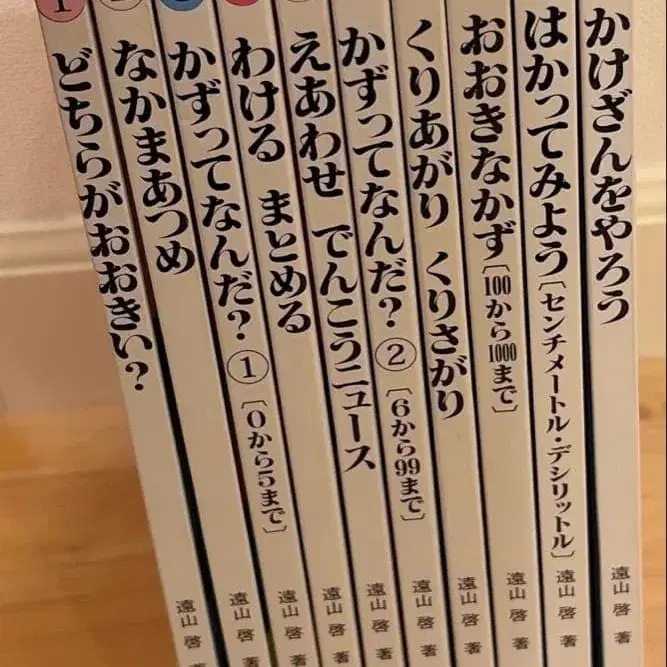 1
どちらがおおきい?
遠山 啓 著
なかまあつめ
遠山 啓 著
かずってなんだ? ① [0から5まで]
遠山 啓 著
わける まとめる
遠山 啓 著
えあわせ でんこうニュース
遠山 啓 著
かずってなんだ? ② [6から99まで]
遠山 啓 著
くりあがり くりさがり
遠山 啓 著
おおきなかず [100から1000まで]
遠山 啓 著
はかってみよう [センチメートル・デシリットル]
遠山 啓 著
かけざんをやろう
遠山 啓 著